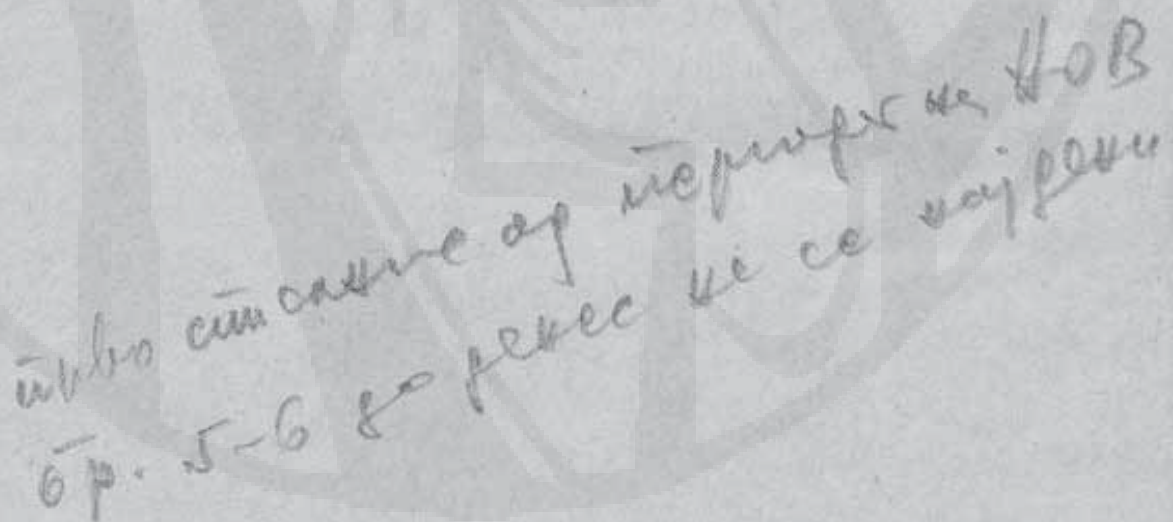 прво списание од периодот на НОВ
бр. 5-6 до денес не се најдени